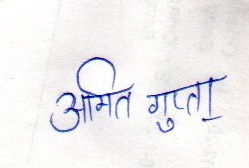 अमित गुप्ता